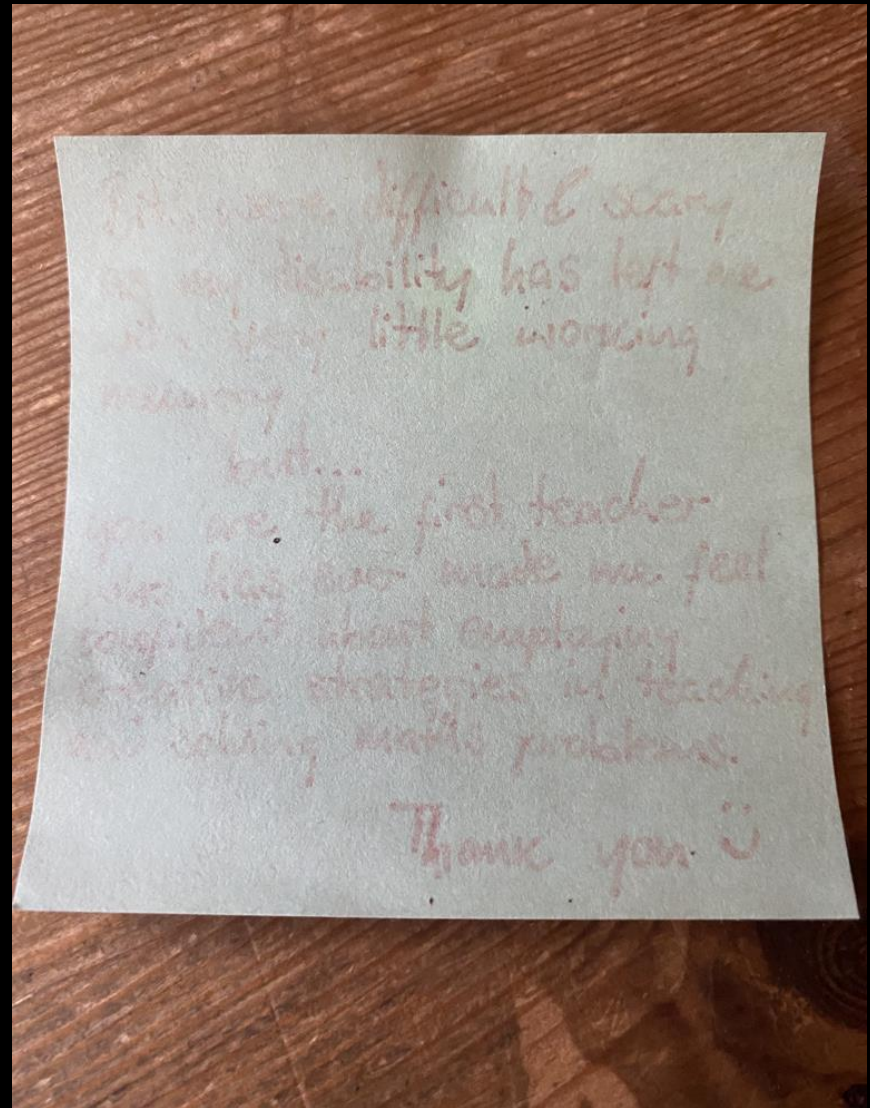 difficult & scary
as my disability has left me
very little working
memory
but...
you are the first teacher
who has ever made me feel
confident about employing
creative strategies in teaching
and solving maths problems.
Thank you :)